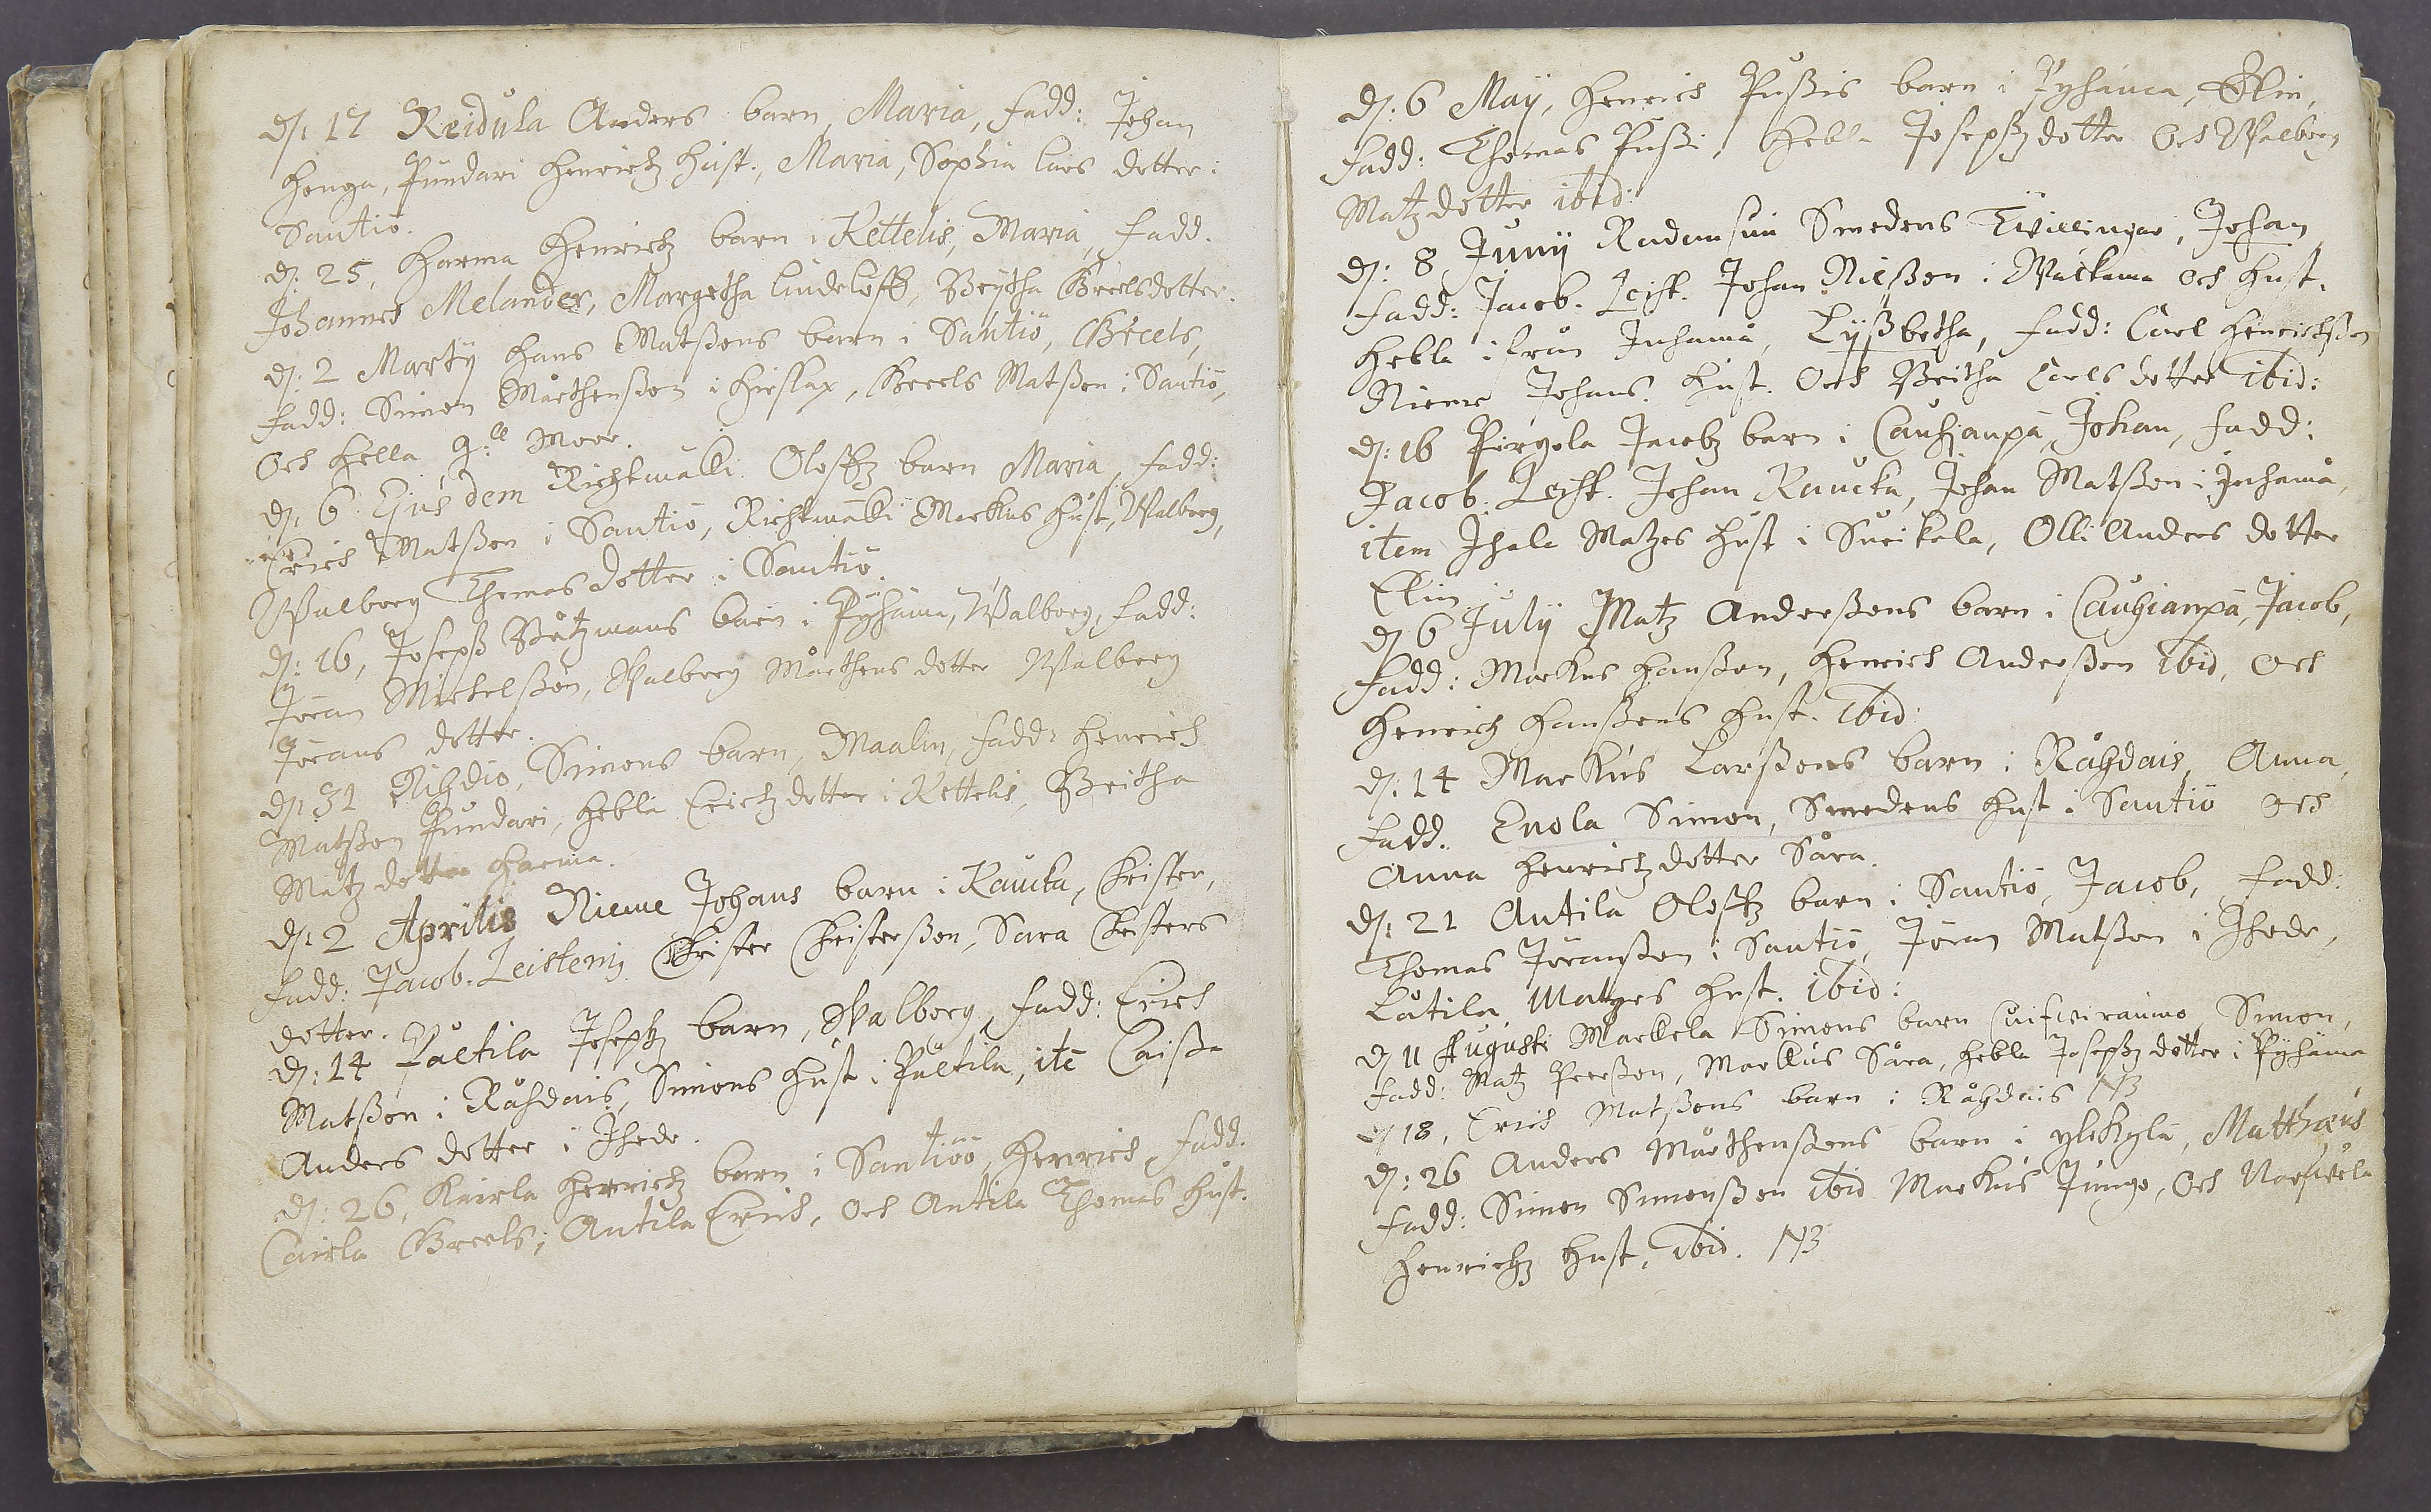 d. 17 Reidula Anders barn, Maria, fadd: Johan
Honga, Pundari Henrichz hust., Maria, Sophia Lars dotter i
Santio.
d. 25, Harma Henrichz barn i Kettelis, Maria, fadd.
Johannes Melander, Margetha Lindeloff, Brytha Greelsdotter.
d: 2 Martij Hans Matßons barn i Santiö, Greels,
fadd: Simon Mårthenßon i Hirslax, Greels Matßon i Santiö,
och Hella g:ll Moor.
d. 6 Ejusdem Richtmälli Oloffz barn Maria, fadd:
Erich Matßon i Santiö, Richtmälli Markus hust, Walborg,
Walborg Thomas dotter i Santiö.
d: 16, Joseph Båtzmans barn i Pyhäma, Walborg, fadd:
Jöran Michelßon, Walborg Mårthens dotter Walborg
Jörans dotter.
d: 31 Rihdio, Simons barn, Maalin, fadd: Henrich
Matßon Pundari, Hebla Erichz dotter i Kettelis, Breitha
Matz dotter Harma.
d: 2 Aprilis Nieme Johans barn i Kaucka, Christer,
fadd: Jacob. Leistenij Christer Christerßon, Sara Christers
dotter.
d: 14 Paltila Josephz barn, Walborg, fadd: Erich
Matßon i Råhdais, Simons hust i Paltila, itē Caisa
Anders dotter i Ihode.
d: 26, Kairla Henrichz barn i Santiöö, Henrich, fadd.
Cairla Greels; Antila Erich, och Antila Thomas hust.
d: 6 Maij, Henrich Pußis barn i Pyhäma, Elin,
fadd: Thomas Pußi, Hebla Josephz dotter och Walborg
Matz dotter ibid:
d: 8 Junij Swedens Twillingar, Johan
fadd: Jacob. Leist. Johan Nilßon i Walkama och hust.
Hebla ifrån Inhamå, Lyßbetha, fadd: Carl Henrichßon
Nieme Johans hust. och Breitha Carls dotter ibid:
d: 16 Pirgola Jacobz barn i Cauhianpä, Johan, fadd:
Jacob. Leist. Johan Kaucka, Johan Matßon i Inhamå,
item Ihala Matzes hust i Sveikala, Olli Anders dotter
Elin
d 6 Julij Matz Anderßons barn i Cauhianpä, Jacob,
fadd: Markus Hanßon, Henrich Anderßon ibid, och
Henrich Hanßons hust. ibid:
d: 14 Markus Larßons barn i Råhdais, Anna,
fadd. Enola Simon, Smedens hust i Santiö och
Anna Henrichz dotter Såra.
d: 21 Antila Oloffz barn i Santiö, Jacob, fadd:
Thomas Jöranßon i Santiö, Jöran Matßon i Ihode,
Låtila Matzes hust. ibid:
d 11 Augusti Markela Simons barn Simon,
fadd: Matz Peerßon, Markus Såra, Hebla Josephz dotter i Pyhäma
d 18, Erich Matßons barn i Råhdais NB
d: 26 Anders Mårthenßons barn i ylikylä, Matthæus
fadd: Simon Simonßon ibid Markus Junge, och
Henrichz hust, ibid. NB